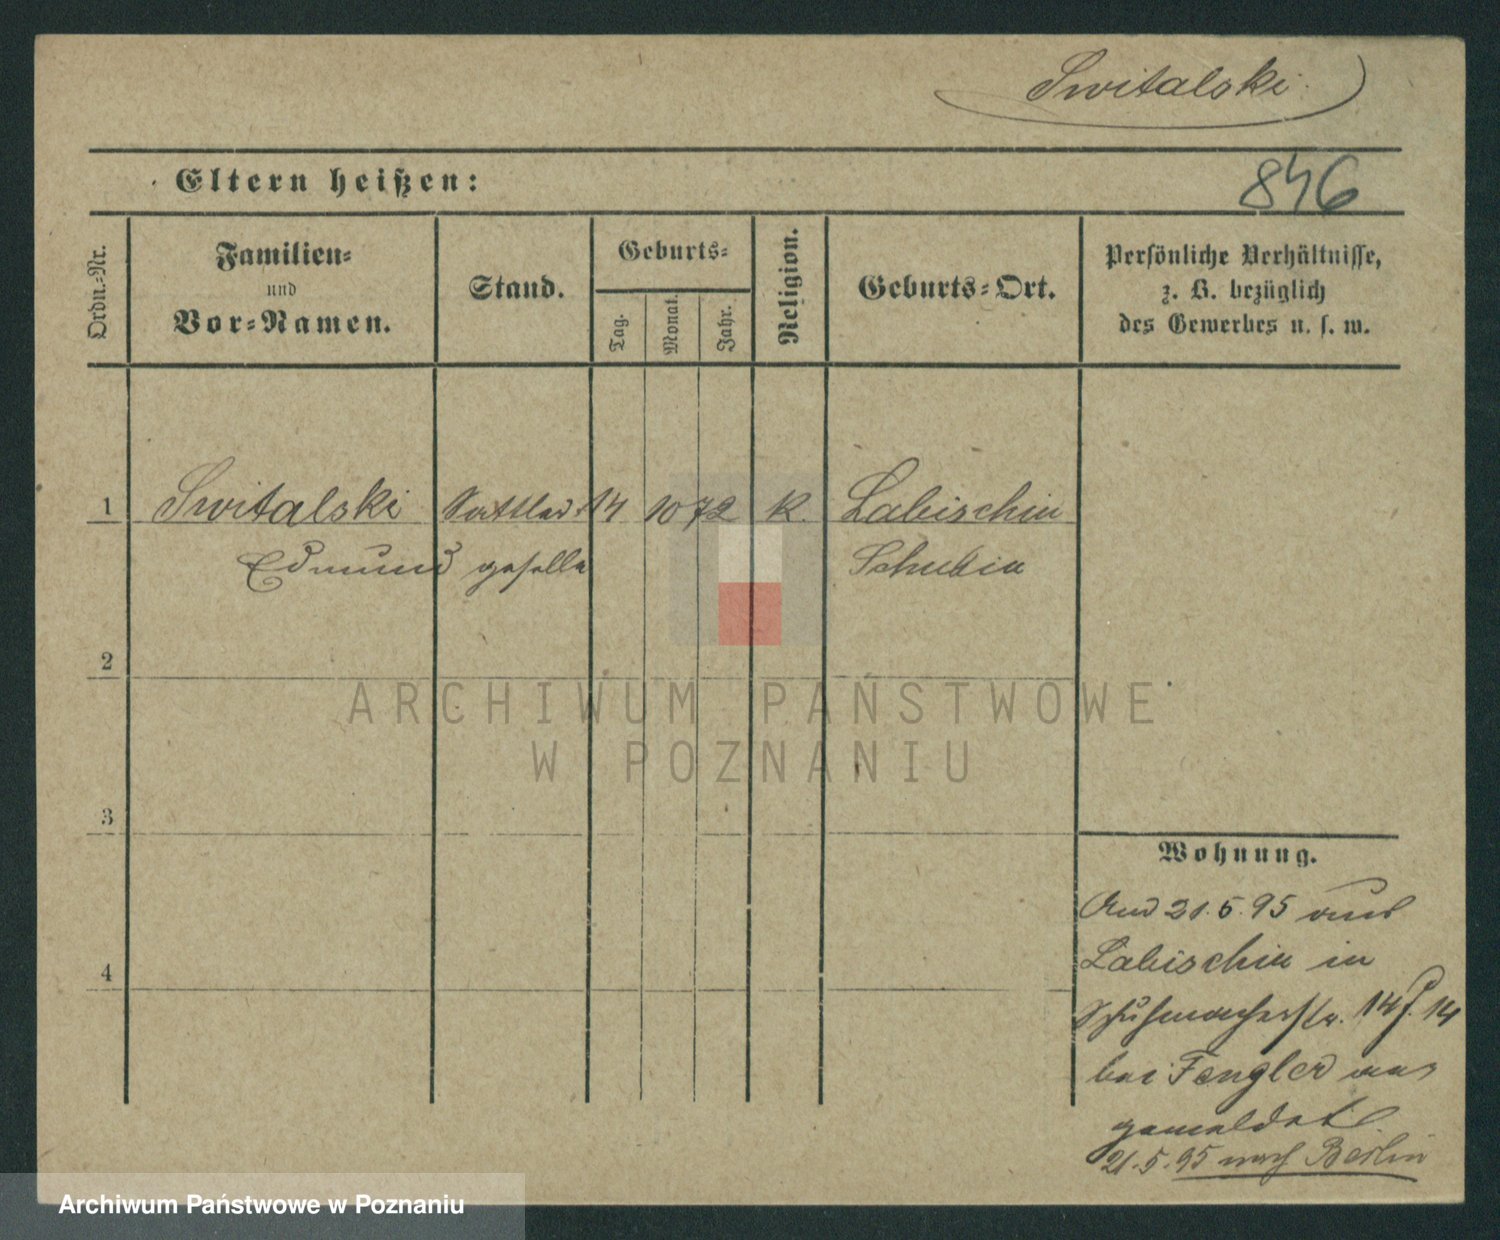 Switalski.
846
Eltern heißen:
Ordn.-Nr.
Familien-
und
Vor-Namen.
Stand.
Geburts-
Tag.
Monat.
Jahr.
Religion.
Geburts-Ort.
Persönliche Verhältnisse,
z. B. bezüglich
des Gewerbes u. s. w.
1 Switalski Sattler 14 10 72 K. Labischin
Edmund geselle Schubin
2
3
4
Wohnung.
21.5.95 aus
Labischin in
Schuhmacherstr. 14
bei Fengler
gemeldet
21.5.95 nach Berlin
ARCHIWUM PAŃSTWOWE
W POZNANIU
Archiwum Państwowe w Poznaniu